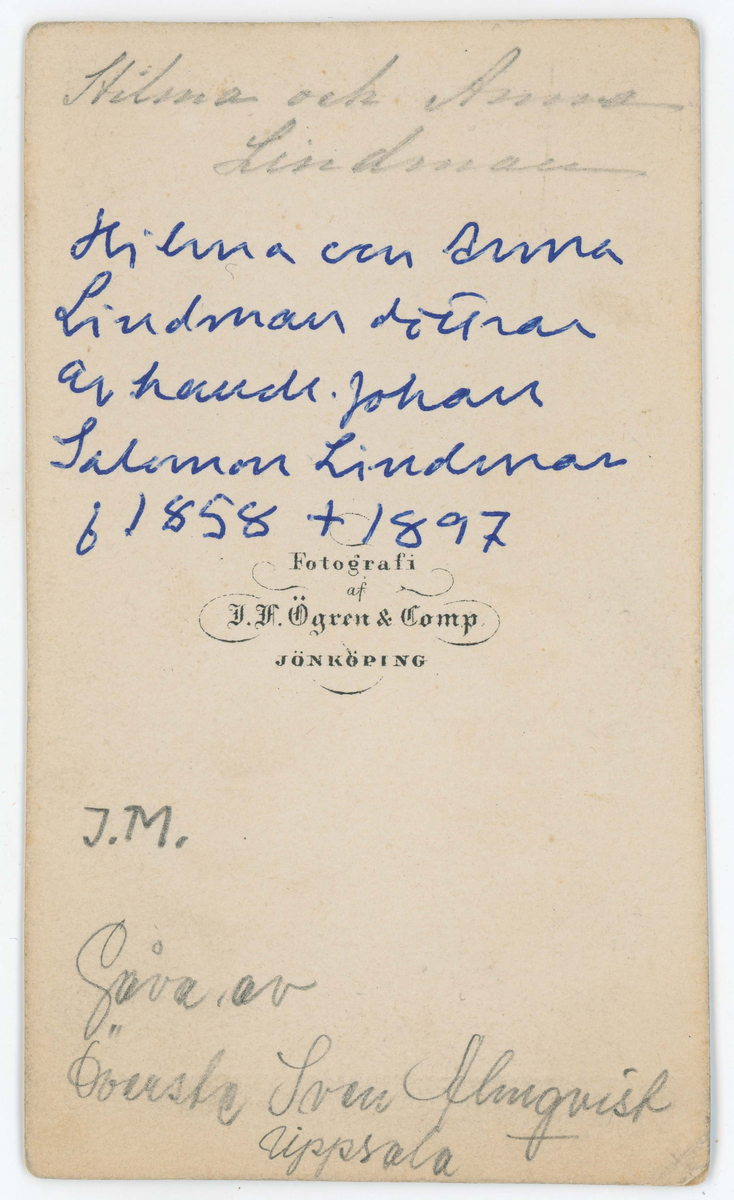 Hilma och Anna
Lindman
Hilma och Anna
Lindman döttrar
av handl. Johan
Salomon Lindman
f 1858 + 1897
Fotografi
af
J. F. Ögren & Comp.
JÖNKÖPING
J.M.
Gåva av
Överste Sven Almqvist
Uppsala